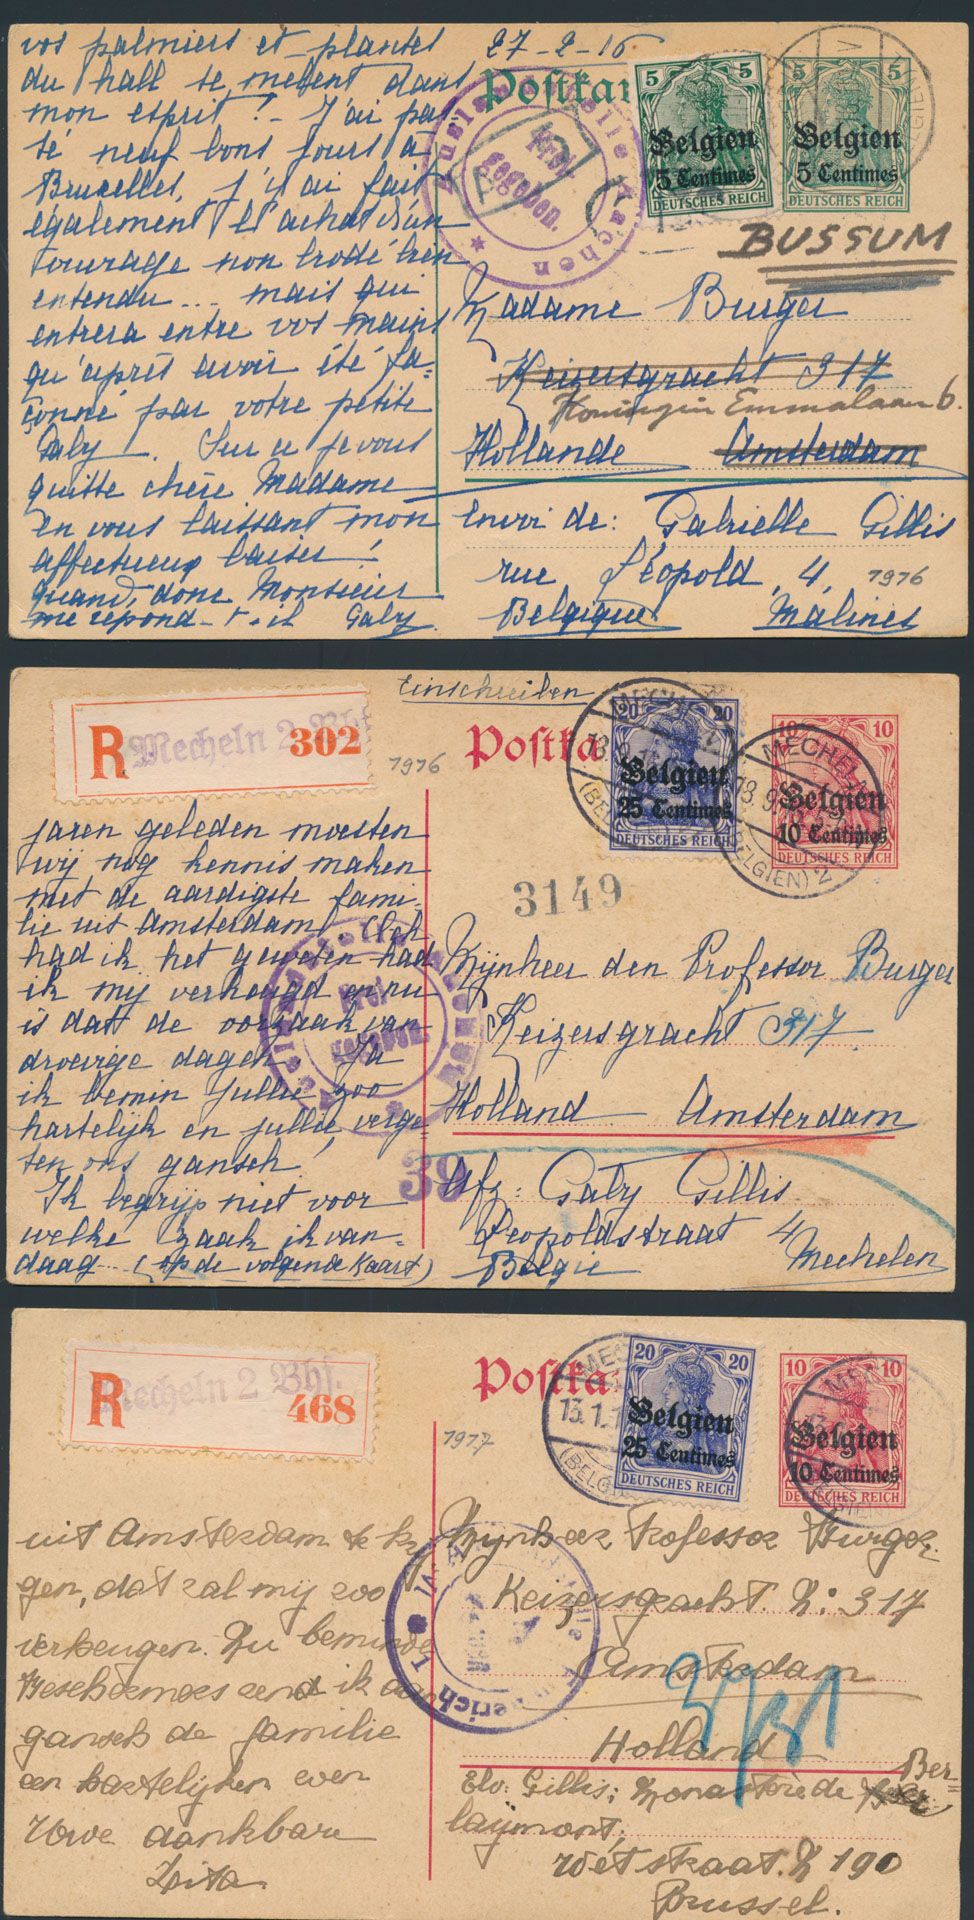 vos palmiers et plantes
du hall se mêlent dans
mon esprit ? - J'ai pas
sé neuf bons jours à
Bruxelles, j'y ai fait
également l'achat d'un
ouvrage non brodé bien
entendu ... mais qui
entrera entre vos mains
qu'après avoir été fa-
çonné par votre petite
Gaby. Sur ce je vous
quitte chère Madame
en vous laissant mon
affectueux baiser !
quand, donc Monsieur
me répond-t-il Gaby
27-2-16
Postkar
Auslandsstelle Aachen
Frei
gegeben.
5 5
Belgien
5 Centimes
DEUTSCHES REICH
5 5
Belgien
5 Centimes
DEUTSCHES REICH
BUSSUM
Madame Burger
Keizersgracht 317
Koningin Emmalaan 6.
Hollande Amsterdam
Envoi de: Gabrielle Gillis
rue Léopold, 4, 1916
Belgique Malines
R Mecheln 2 Bhf
302
Einschreiben
1916
Postka
MECHELN
(BELGIEN) 2
20 20
Belgien
25 Centimes
DEUTSCHES REICH
10 10
Belgien
10 Centimes
DEUTSCHES REICH
3149
jaren geleden moesten
wij nog kennis maken
met de aardigste fami-
lie uit Amsterdam. Och
had ik het geweten had
ik mij verheugd en nu
is dat de oorzaak van
droevige dagen. Ja
ik bemin jullie zoo
hartelijk en jullie verge
ten ons gansch!
Ik begrijp niet voor
welke zaak ik van-
daag... (op de volgende kaart)
39
Mijnheer den Professor Burger
Keizersgracht 317
Holland Amsterdam
Afz: Gaby Gillis
Leopoldstraat 4
België Mechelen
R Mecheln 2 Bhf.
468
1917
Postka
13.1.1
(BELG
20 20
Belgien
25 Centimes
DEUTSCHES REICH
10 10
Belgien
10 Centimes
DEUTSCHES REICH
uit Amsterdam te krij
gen, dat zal mij zoo
verheugen. Zu beminde
Beschermers zend ik dan
gansch de familie
een hartelijken even
Uwe dankbare
Zita.
Mynheer Professor Burger
Keizersgracht. Z: 317
Amsterdam
Holland
Elv: Gillis; Monastère de Ber-
laymont;
Wétstraat. Z 190
Brussel.